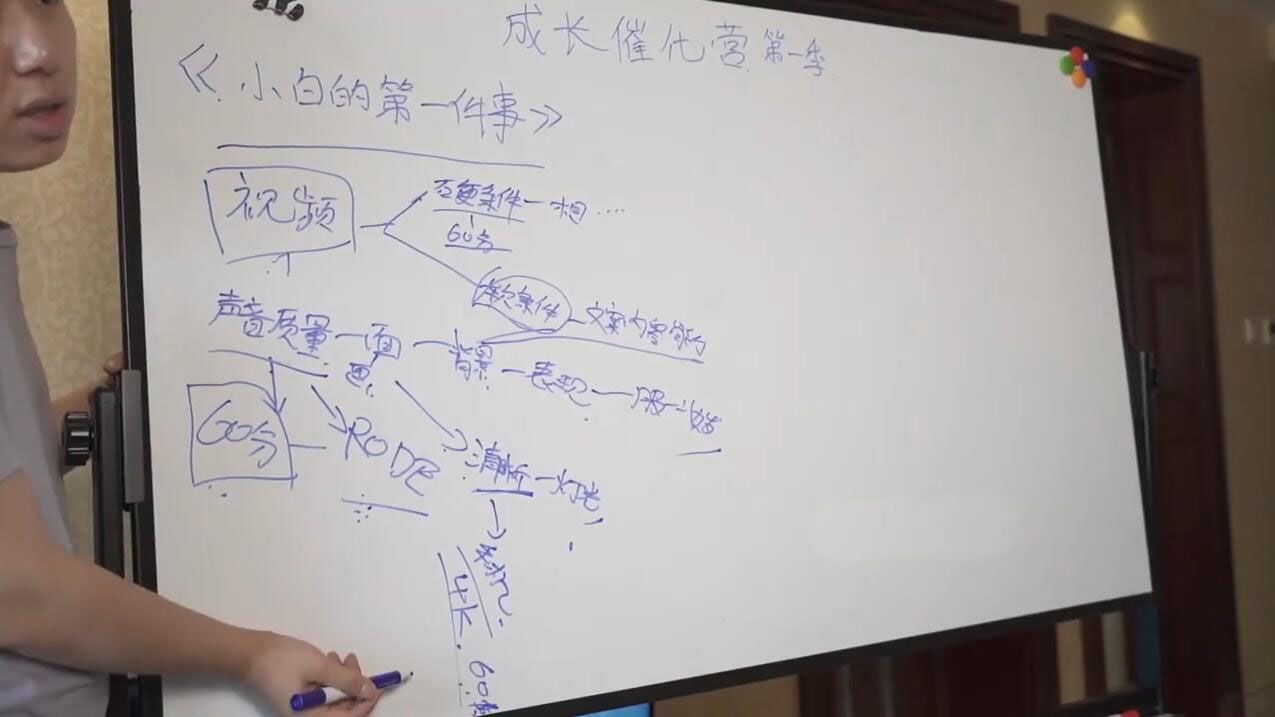 成长催化营第一季
《小白的第一件事》
视频
条件一相....
60分
软条件 - 文案内容简约
声音质量 一 画面 一 背景 一 表现 一 服
60分 一 RODE
清晰 一 灯光
4K.
60